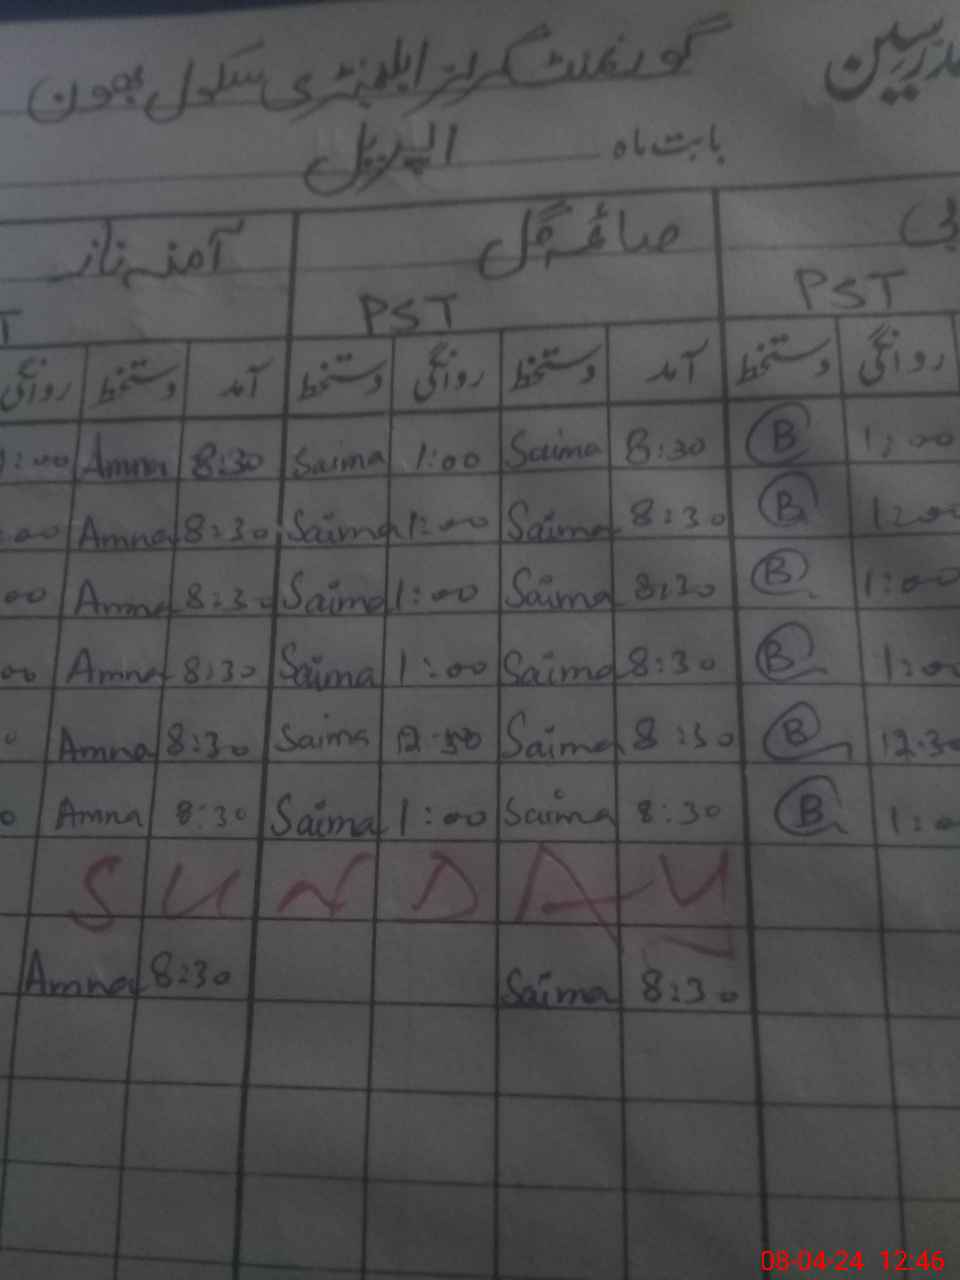 مدرسین گورنمنٹ گرلز ایلیمنٹری سکول بھون
بابت ماہ اپریل
بی صائمہ گل آمنہ ناز
PST PST T
روانگی دستخط آمد دستخط روانگی دستخط آمد دستخط روانگی
1:00 Amna 8:30 Saima 1:00 Saima 8:30 B 1:00
:00 Amna 8:30 Saima 1:00 Saima 8:30 B 1:00
00 Amna 8:30 Saima 1:00 Saima 8:30 B 1:00
00 Amna 8:30 Saima 1:00 Saima 8:30 B 1:00
0 Amna 8:30 Saima 12:30 Saima 8:30 B 12:30
0 Amna 8:30 Saima 1:00 Saima 8:30 B 1:0
SUNDAY
Amna 8:30 Saima 8:30
08-04-24 12:46